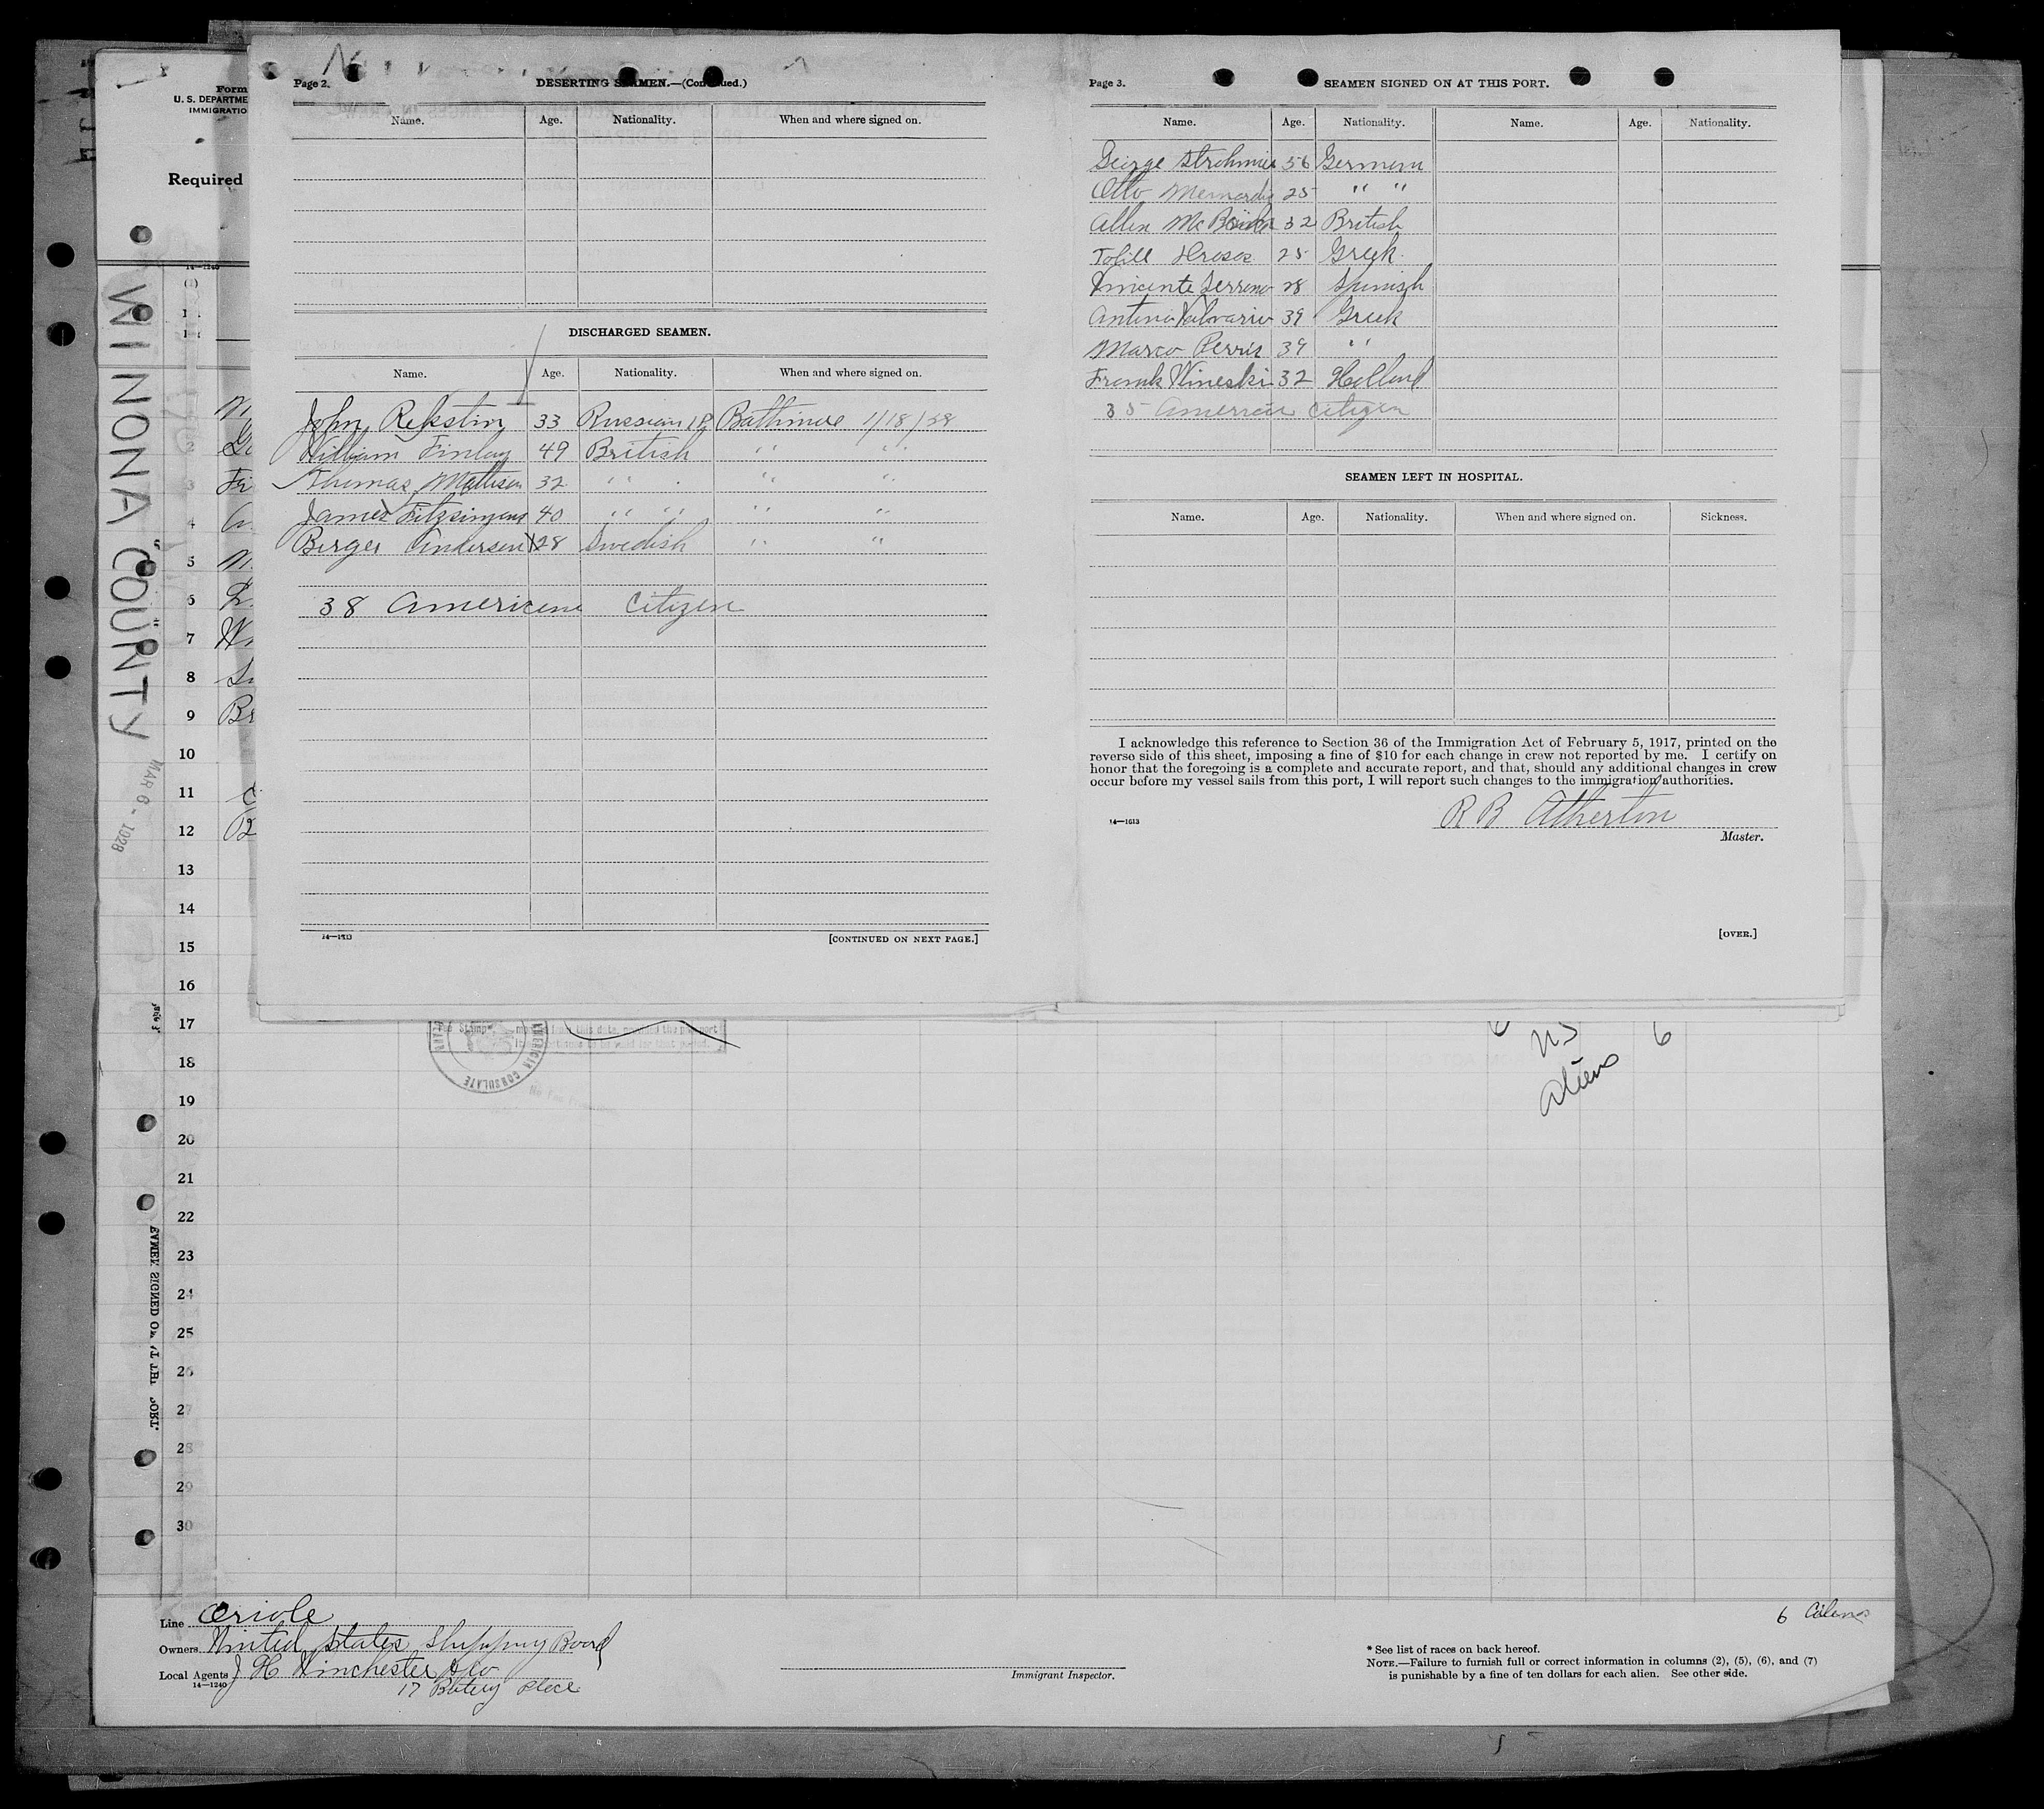 Form
U. S. DEPARTME
IMMIGRATIO
Required
14—1240
"WINONA COUNTY"
MAR 6 - 1928
2
3
4
5
6
7
8
9
10
11
12
13
14
15
16
17
18
19
20
21
22
23
24
25
26
27
28
29
30
Page 2.
DESERTING SEAMEN.—(Continued.)
Name. Age. Nationality. When and where signed on.
DISCHARGED SEAMEN.
Name. Age. Nationality. When and where signed on.
John Rekstin 33 Russian Baltimore 1/18/28
William Finlay 49 British " "
Thomas Matheson 32 " " "
James Fitzsimons 40 " " " "
Birger Andersen 28 Swedish " "
38 American Citizen
14—1613
[CONTINUED ON NEXT PAGE.]
Page 3.
SEAMEN SIGNED ON AT THIS PORT.
Name. Age. Nationality. Name. Age. Nationality.
George Strohmier 56 German
Otto 25 " "
Allen 32 British
25 Greek
Vincente Serrano 28 Spanish
39 Greek
Marco Perris 39 "
Frank Wineski 32 Holland
35 American Citizen
SEAMEN LEFT IN HOSPITAL.
Name. Age. Nationality. When and where signed on. Sickness.
I acknowledge this reference to Section 36 of the Immigration Act of February 5, 1917, printed on the
reverse side of this sheet, imposing a fine of $10 for each change in crew not reported by me. I certify on
honor that the foregoing is a complete and accurate report, and that, should any additional changes in crew
occur before my vessel sails from this port, I will report such changes to the immigration authorities.
R B Atherton
Master.
14—1613
[OVER.]
AMERICAN CONSULATE
No Fee
US
6
Aliens
6 Aliens
Line Oriole
Owners United States Shipping Board
Local Agents J H Winchester & Co
14—1240
17 Battery Place
Immigrant Inspector.
* See list of races on back hereof.
NOTE.—Failure to furnish full or correct information in columns (2), (5), (6), and (7)
is punishable by a fine of ten dollars for each alien. See other side.